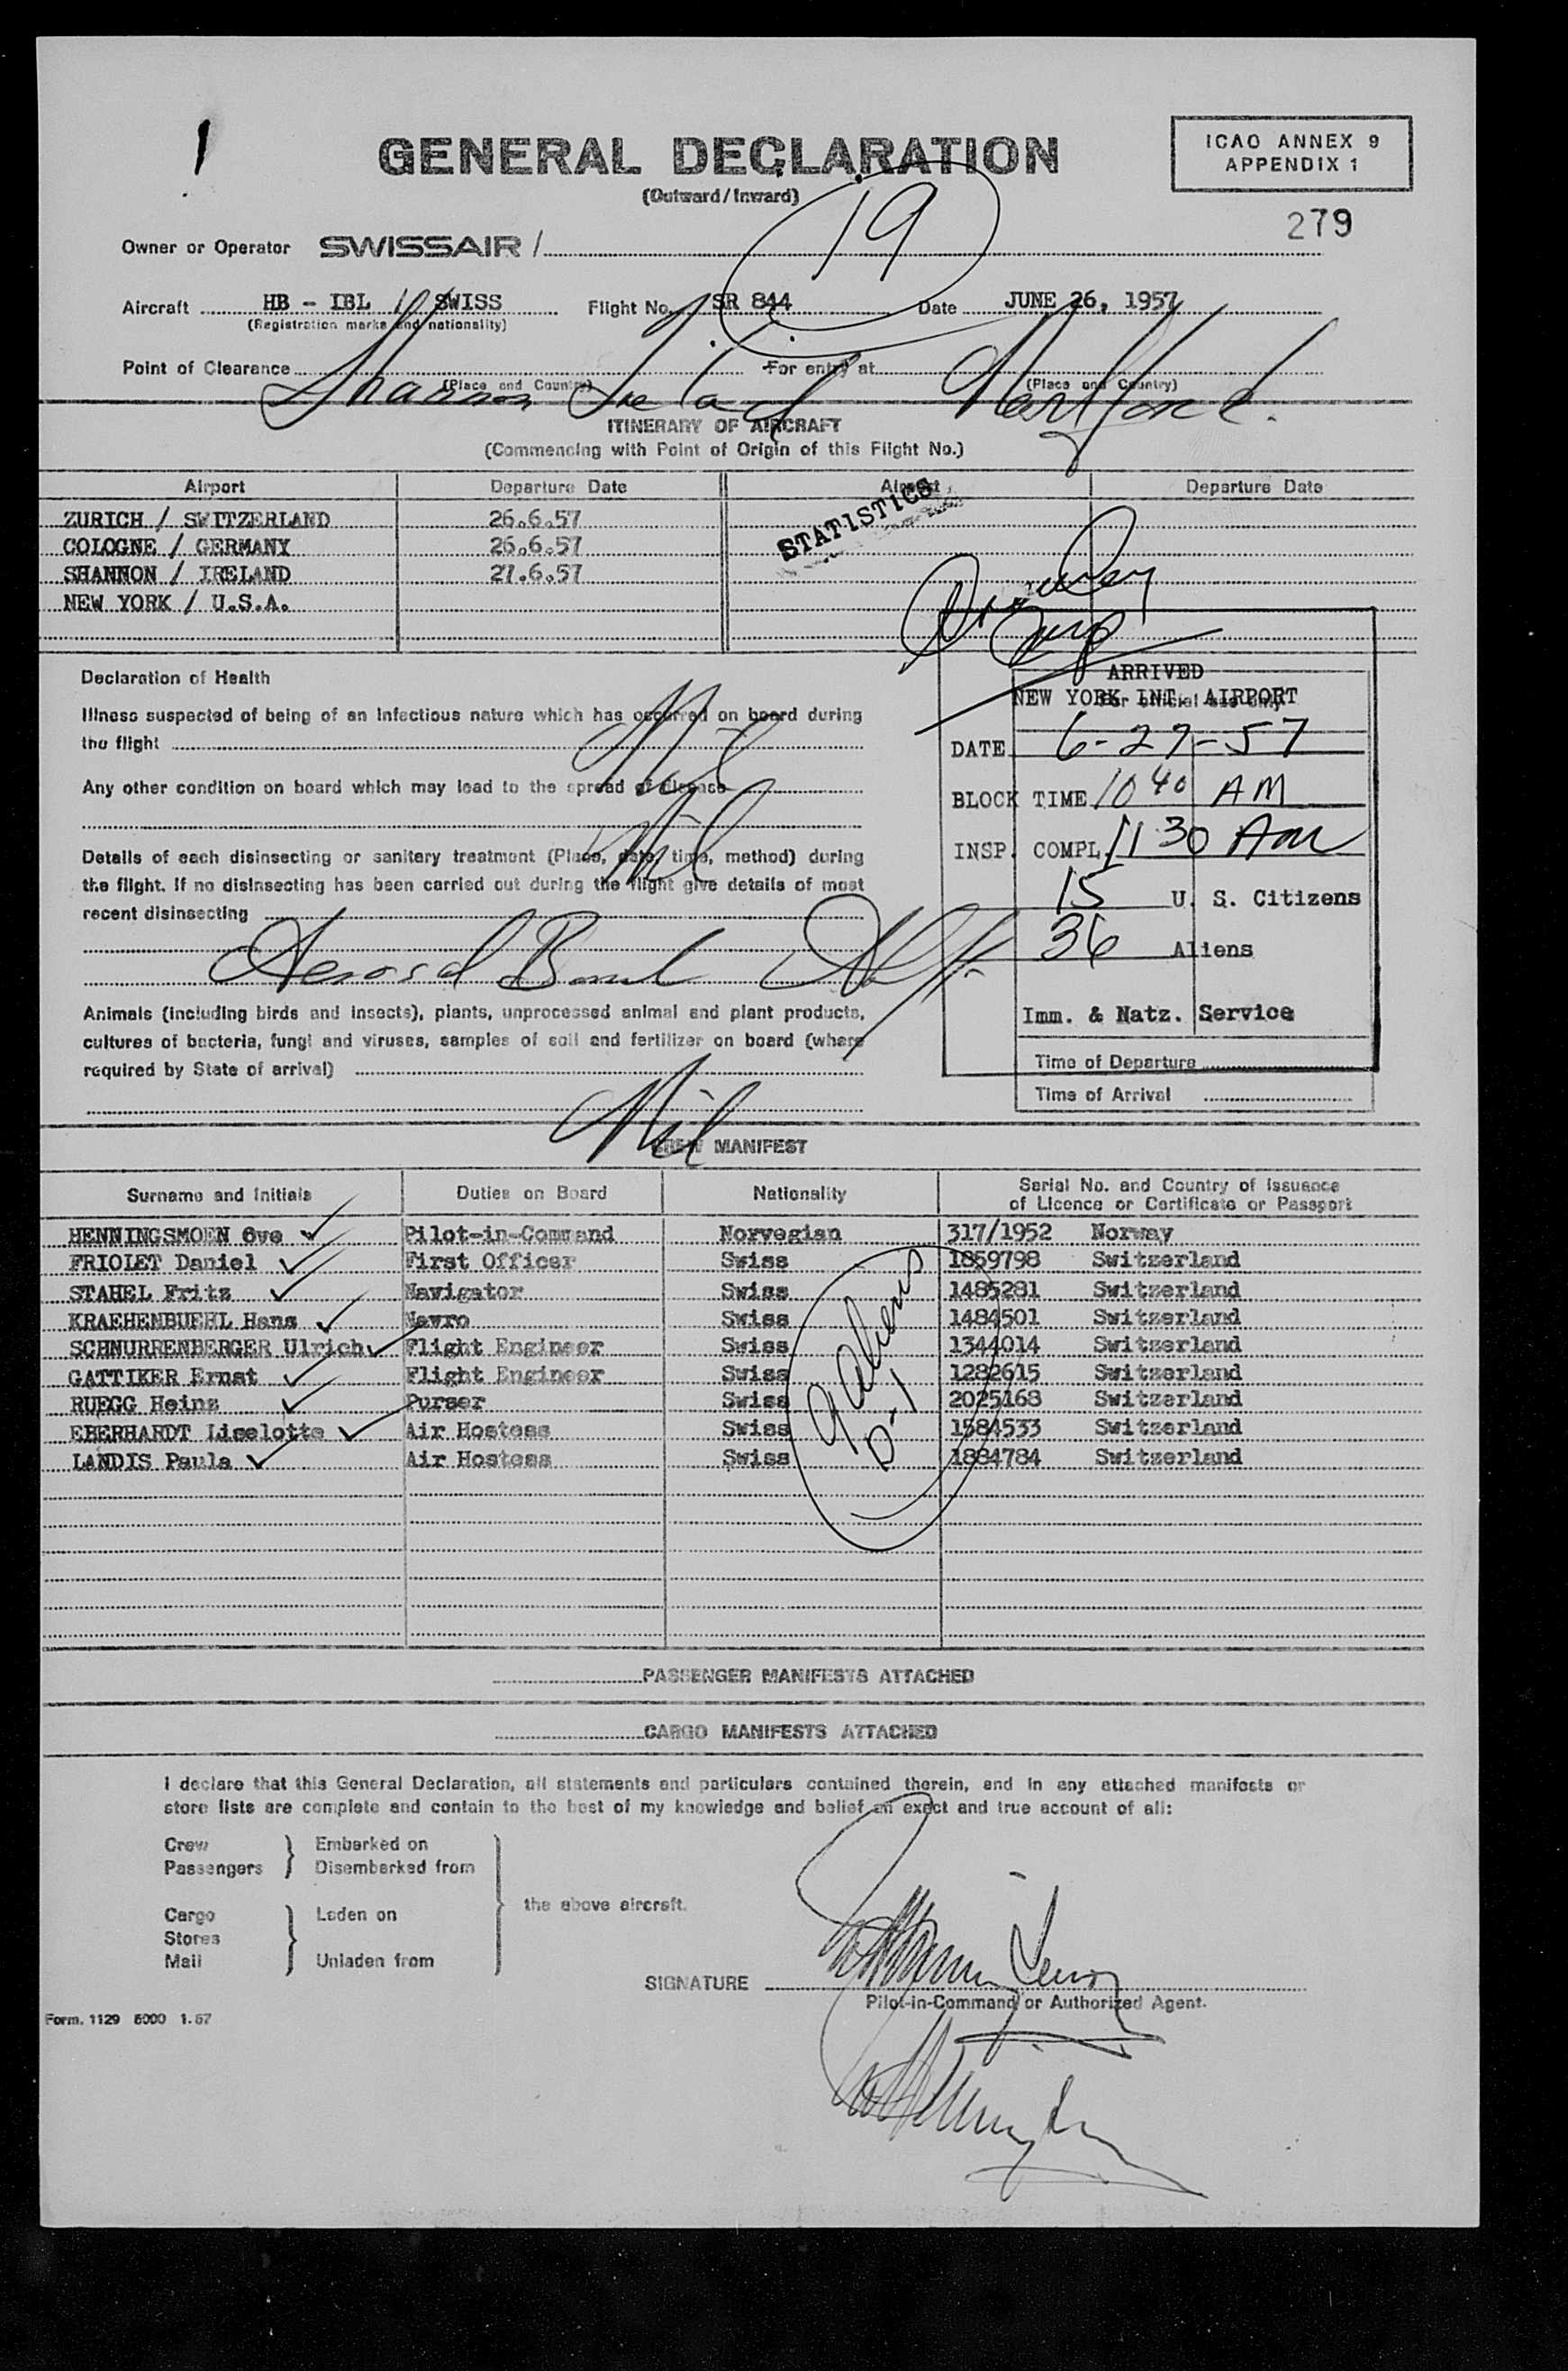 1
GENERAL DECLARATION
(Outward/Inward)
ICAO ANNEX 9
APPENDIX 1
279
19
Owner or Operator SWISSAIR /
Aircraft HB - IBL / SWISS Flight No. SR 844 Date JUNE 26, 1957
(Registration marks and nationality)
Point of Clearance Shannon Ireland For entry at New York
(Place and Country) (Place and Country)
ITINERARY OF AIRCRAFT
(Commencing with Point of Origin of this Flight No.)
Airport Departure Date Airport Departure Date
STATISTICS
ZURICH / SWITZERLAND 26.6.57
COLOGNE / GERMANY 26.6.57
SHANNON / IRELAND 27.6.57
NEW YORK / U.S.A.
Declaration of Health
Illness suspected of being of an infectious nature which has occurred on board during
the flight Nil
Any other condition on board which may lead to the spread of disease
Nil
Details of each disinsecting or sanitary treatment (Place, date, time, method) during
the flight. If no disinsecting has been carried out during the flight give details of most
recent disinsecting
Aerosol Bomb
Animals (including birds and insects), plants, unprocessed animal and plant products,
cultures of bacteria, fungi and viruses, samples of soil and fertilizer on board (where
required by State of arrival)
Nil
For official use only
ARRIVED
NEW YORK INT. AIRPORT
DATE 6-27-57
BLOCK TIME 10 40 AM
INSP. COMPL. 11 30 AM
15 U. S. Citizens
36 Aliens
Imm. & Natz. Service
Time of Departure
Time of Arrival
CREW MANIFEST
Surname and Initials Duties on Board Nationality Serial No. and Country of Issuance
of Licence or Certificate or Passport
HENNINGSMOEN Ove Pilot-in-Command Norwegian 317/1952 Norway
FRIOLET Daniel First Officer Swiss 1859798 Switzerland
STAHEL Fritz Navigator Swiss 1485281 Switzerland
KRAEHENBUEHL Hans Navro Swiss 1484501 Switzerland
SCHNURRENBERGER Ulrich Flight Engineer Swiss 1344014 Switzerland
GATTIKER Ernst Flight Engineer Swiss 1282615 Switzerland
RUEGG Heinz Purser Swiss 2025168 Switzerland
EBERHARDT Liselotte Air Hostess Swiss 1584533 Switzerland
LANDIS Paula Air Hostess Swiss 1884784 Switzerland
9 aliens
D-1
PASSENGER MANIFESTS ATTACHED
CARGO MANIFESTS ATTACHED
I declare that this General Declaration, all statements and particulars contained therein, and in any attached manifests or
store lists are complete and contain to the best of my knowledge and belief an exact and true account of all:
Crew Embarked on
Passengers Disembarked from
the above aircraft.
Cargo Laden on
Stores
Mail Unladen from
SIGNATURE
Pilot-in-Command or Authorized Agent.
Form. 1129 5000 1.57